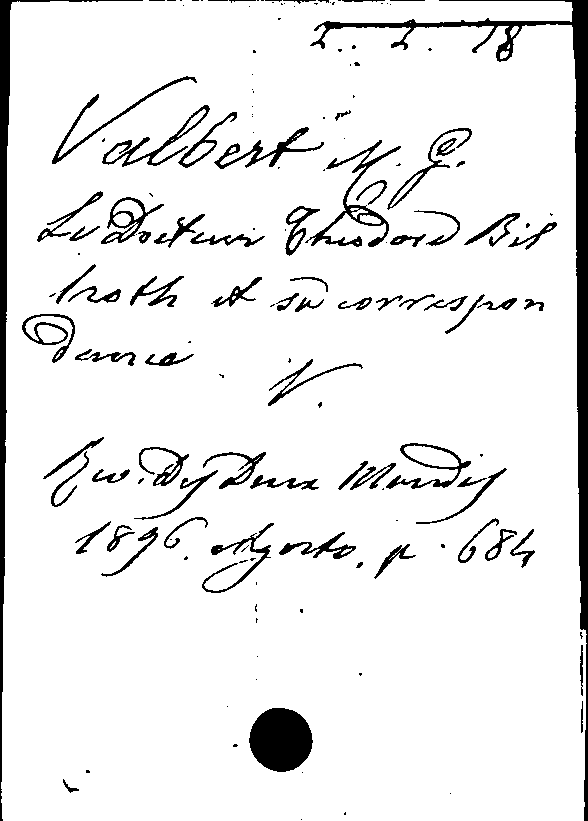 2. 2. 18
Valbert M. G.
Le Docteur Theodore Bil
lroth et sa correspon
dance
V.
Rev. Des Deux Mondes
1896. Agosto, p. 684